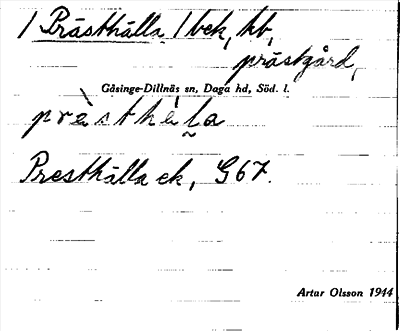 / Prästhälla / bek, hb,
prästgård,
Gåsinge-Dillnäs sn, Daga hd, Söd. l.
prȧ̀sthȧ̀l̰a
Presthälla ek, G67.
Artur Olsson 1944